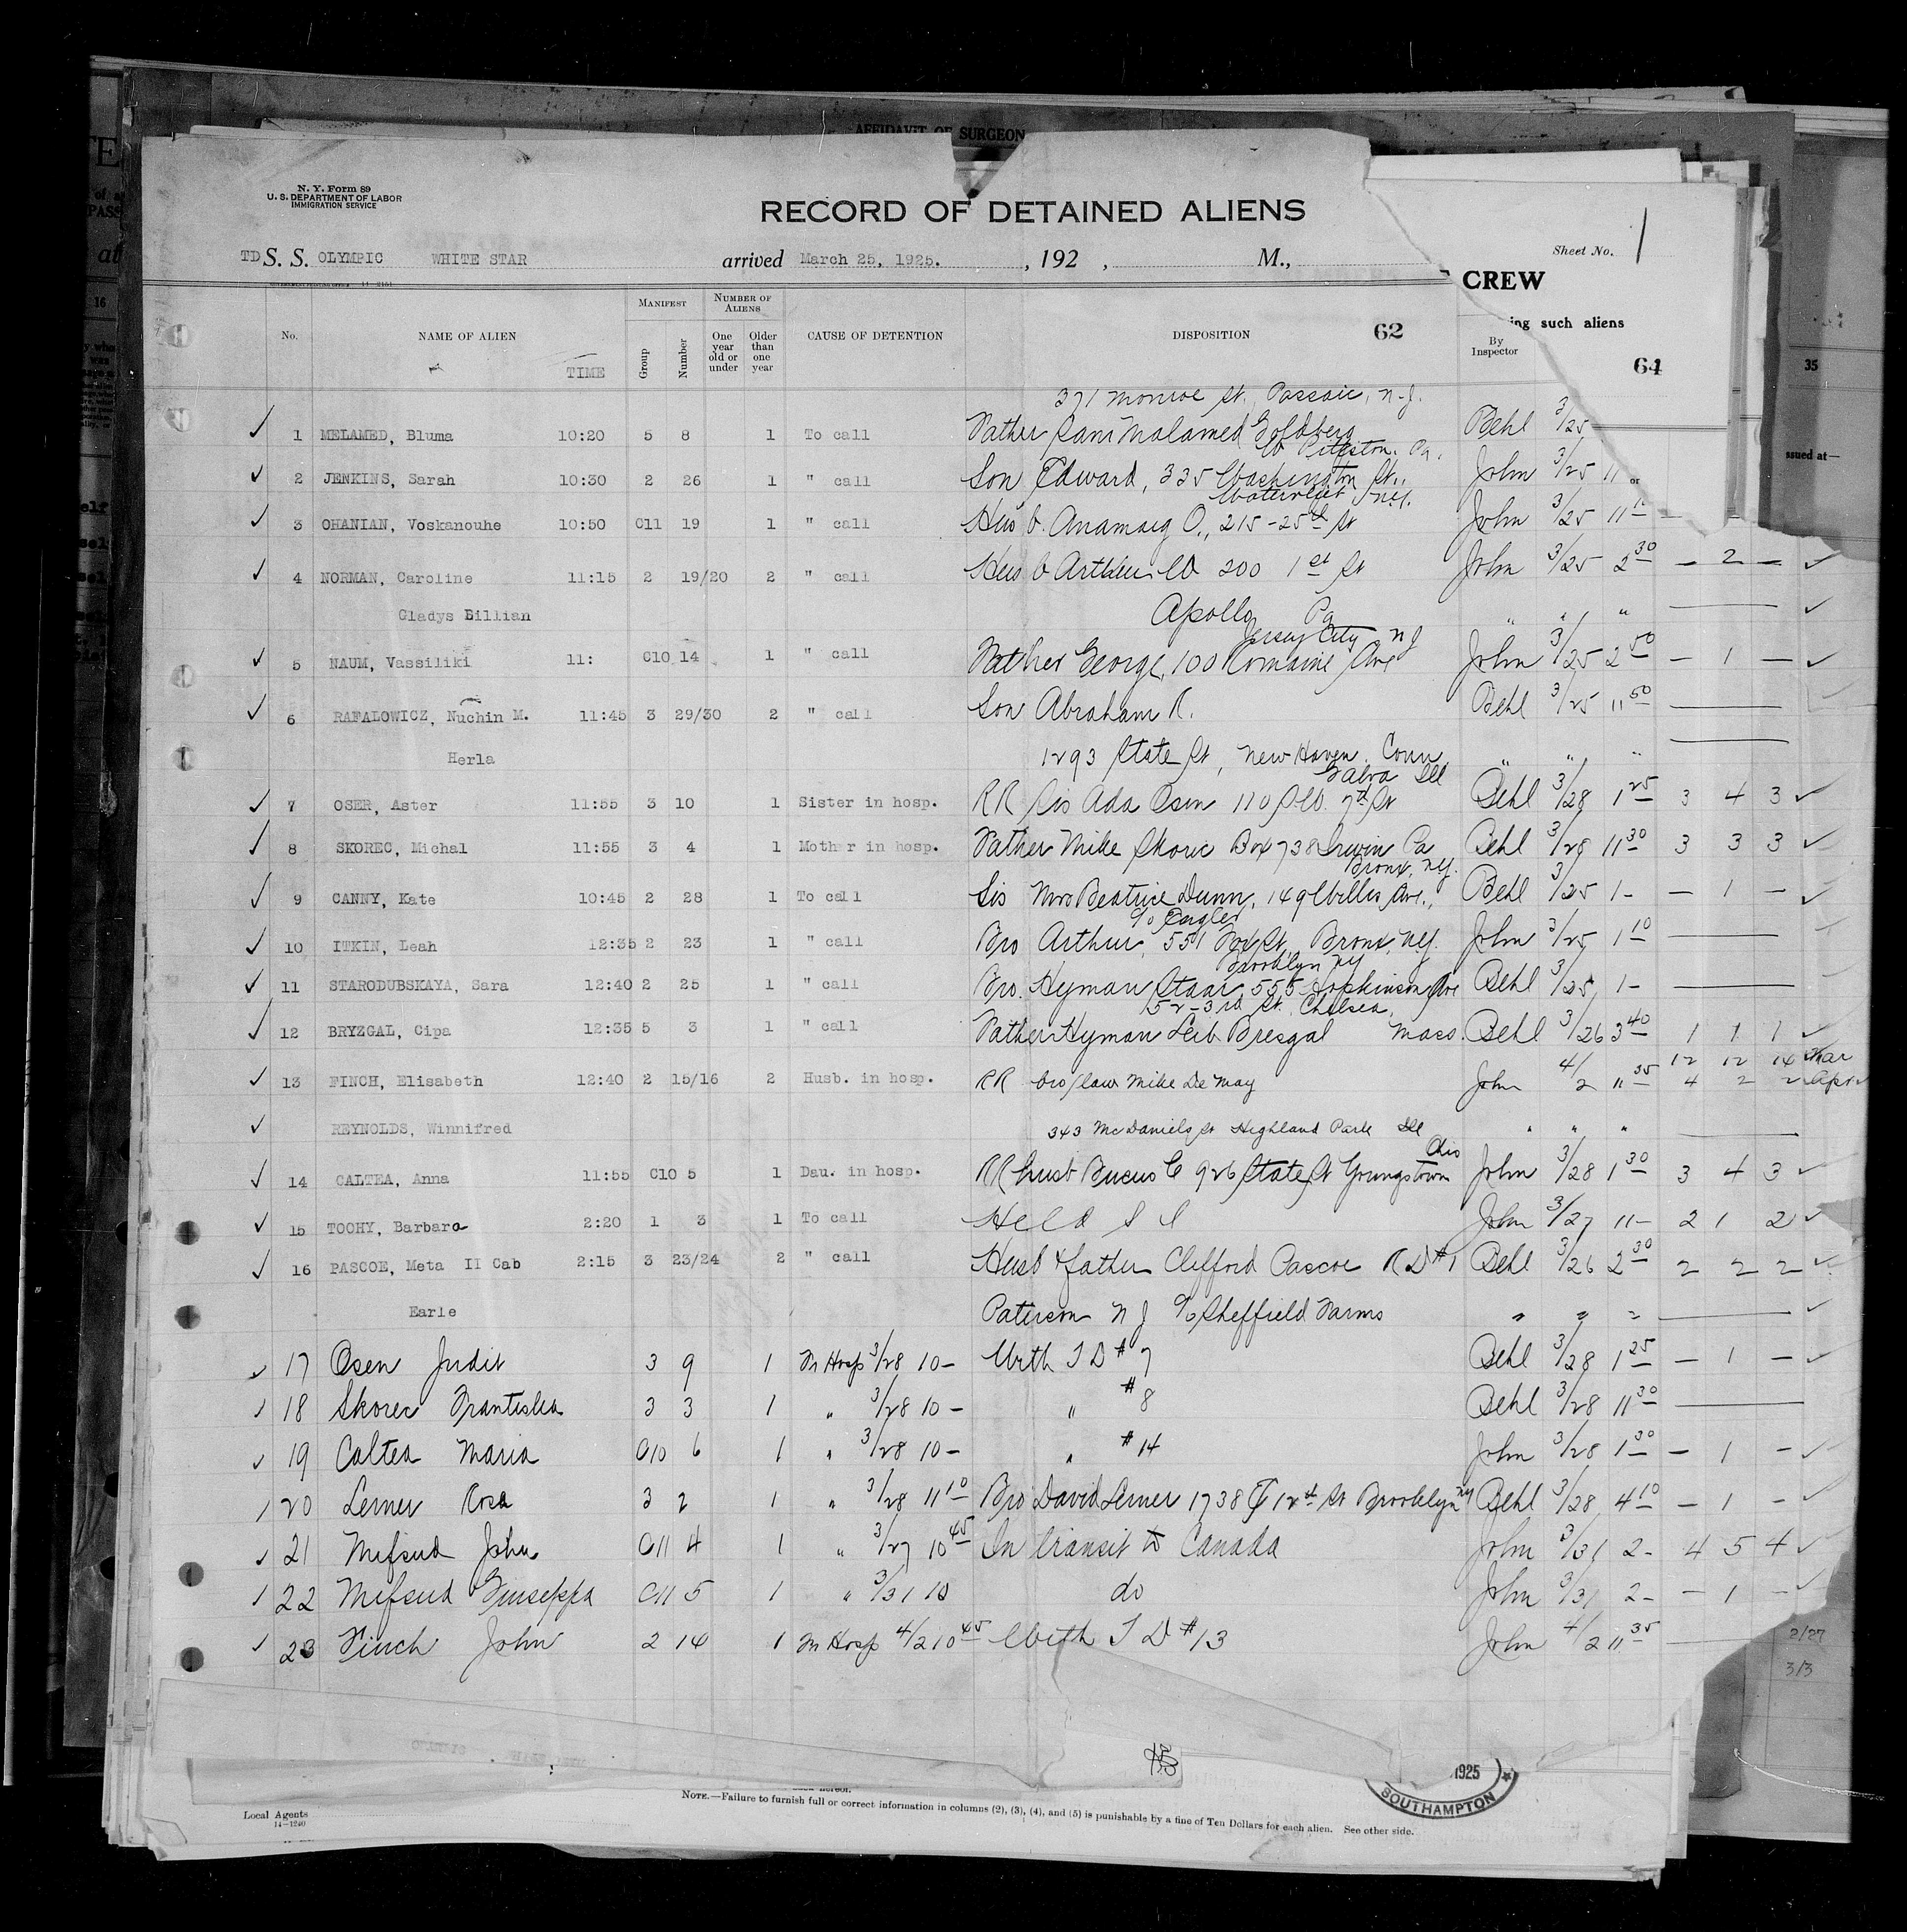 AFFIDAVIT OF SURGEON
N. Y. Form 89
U. S. DEPARTMENT OF LABOR
IMMIGRATION SERVICE
RECORD OF DETAINED ALIENS
Sheet No. 1
TD S. S. OLYMPIC WHITE STAR arrived March 25, 1925. , 192 , M.,
CREW
ing such aliens
64
35
ssued at—
MANIFEST NUMBER OF ALIENS
No. NAME OF ALIEN TIME Group Number One year old or under Older than one year CAUSE OF DETENTION DISPOSITION 62 By Inspector
371 Monroe St., Passaic, N.J.
1 MELAMED, Bluma 10:20 5 8 1 To call Father Sam Malamed Goldberg Behl 3/25
W Pittston, Pa.
2 JENKINS, Sarah 10:30 2 26 1 " call Son Edward, 335 Washington St., John 3/25 11
Watervliet N.Y.
3 OHANIAN, Voskanouhe 10:50 C11 19 1 " call Husb. O., 215-25th St John 3/25 11 —
4 NORMAN, Caroline 11:15 2 19/20 2 " call Husb Arthur W 200 1st St John 3/25 2 30 — 2 —
Gladys Lillian Apollo Pa " " "
Jersey City NJ
5 NAUM, Vassiliki 11: C10 14 1 " call Father George, 100 Romaine Ave John 3/25 2 50 — 1 —
6 RAFALOWICZ, Nuchin M. 11:45 3 29/30 2 " call Son Abraham R. Behl 3/25 11 50
Herla 1293 State St, New Haven, Conn. " " "
Galva Ill
7 OSER, Aster 11:55 3 10 1 Sister in hosp. RR Sis Ada Osen 110 S.W. 7th St Behl 3/28 1 25 3 4 3
8 SKOREC, Michal 11:55 3 4 1 Mother in hosp. Father Mike Skorec Box 738 Irwin Pa Behl 3/28 11 30 3 3 3
Bronx, N.Y.
9 CANNY, Kate 10:45 2 28 1 To call Sis Mrs Beatrice Dunn, 149 Willis Ave., Behl 3/25 1- — 1 —
c/o Engler
10 ITKIN, Leah 12:35 2 23 1 " call Bro Arthur, 551 Fox St, Bronx, N.Y. John 3/25 1 10
Brooklyn NY
11 STARODUBSKAYA, Sara 12:40 2 25 1 " call Bro. Hyman Staar, 555 Hopkinson Ave Behl 3/25 1-
52-3rd St. Chelsea,
12 BRYZGAL, Cipa 12:35 5 3 1 " call Father Hyman Leib Bresgal Mass. Behl 3/26 3 40 1 1 1
12 12 14 Mar
13 FINCH, Elisabeth 12:40 2 15/16 2 Husb. in hosp. RR bro/law Mike De May John 4/2 11 35 4 2 2 Apr
REYNOLDS, Winnifred 343 McDaniels St Highland Park Ill " " "
Ohio
14 CALTEA, Anna 11:55 C10 5 1 Dau. in hosp. RR husb Bucus C 926 State St Youngstown John 3/28 1 30 3 4 3
15 TOOHY, Barbara 2:20 1 3 1 To call Held S I John 3/27 11- 2 1 2
16 PASCOE, Meta II Cab 2:15 3 23/24 2 " call Husb & father Clifford Pascoe R D #1 Behl 3/26 2 30 2 2 2
Earle Paterson N J c/o Sheffield Farms " " "
17 Osen Judit 3 9 1 In Hosp 3/28 10- With T D #7 Behl 3/28 1 25 — 1 —
18 Skorec Frantiska 3 3 1 " 3/28 10- " #8 Behl 3/28 11 30
19 Caltea Maria C10 6 1 " 3/28 10- " #14 John 3/28 1 30 — 1 —
20 Lerner Rosa 3 2 1 " 3/28 11 10 Bro David Lerner 1738 E 12th St Brooklyn NY Behl 3/28 4 10 — 1 —
21 Mifsud John C11 4 1 " 3/27 10 45 In transit to Canada John 3/31 2- 4 5 4
22 Mifsud Giuseppa C11 5 1 " 3/31 10 do John 3/31 2- — 1 —
23 Finch John 2 14 1 In Hosp 4/2 10 45 With T D #13 John 4/2 11 35
2/27
3/3
1925
SOUTHAMPTON
NOTE.—Failure to furnish full or correct information in columns (2), (3), (4), and (5) is punishable by a fine of Ten Dollars for each alien. See other side.
Local Agents
14—1240